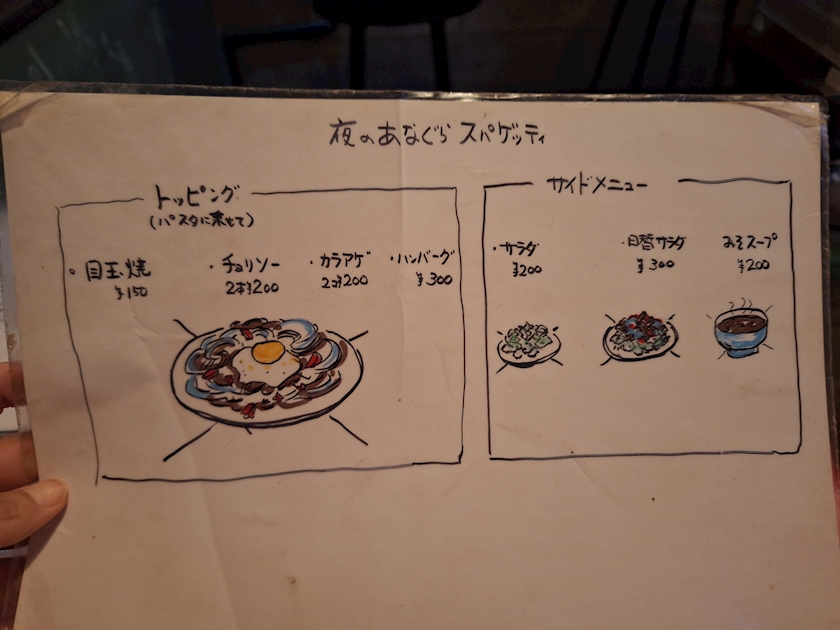 夜のあなぐら スパゲッティ
トッピング
(パスタに乗せて)
・目玉焼
¥150
・チョリソー
2本¥200
・カラアゲ
2コ¥200
・ハンバーグ
¥300
サイドメニュー
・サラダ
¥200
・日替サラダ
¥300
みそスープ
¥200